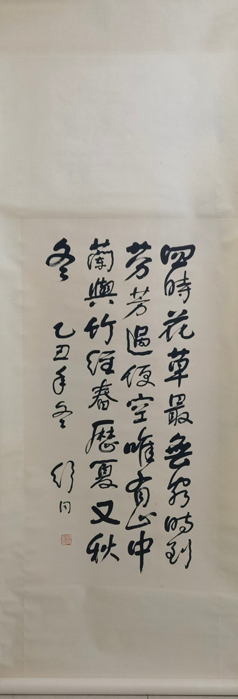 四時花草最無窮時到
芬芳過便空唯有山中
蘭與竹經春歷夏又秋
冬
乙丑年冬 舒同